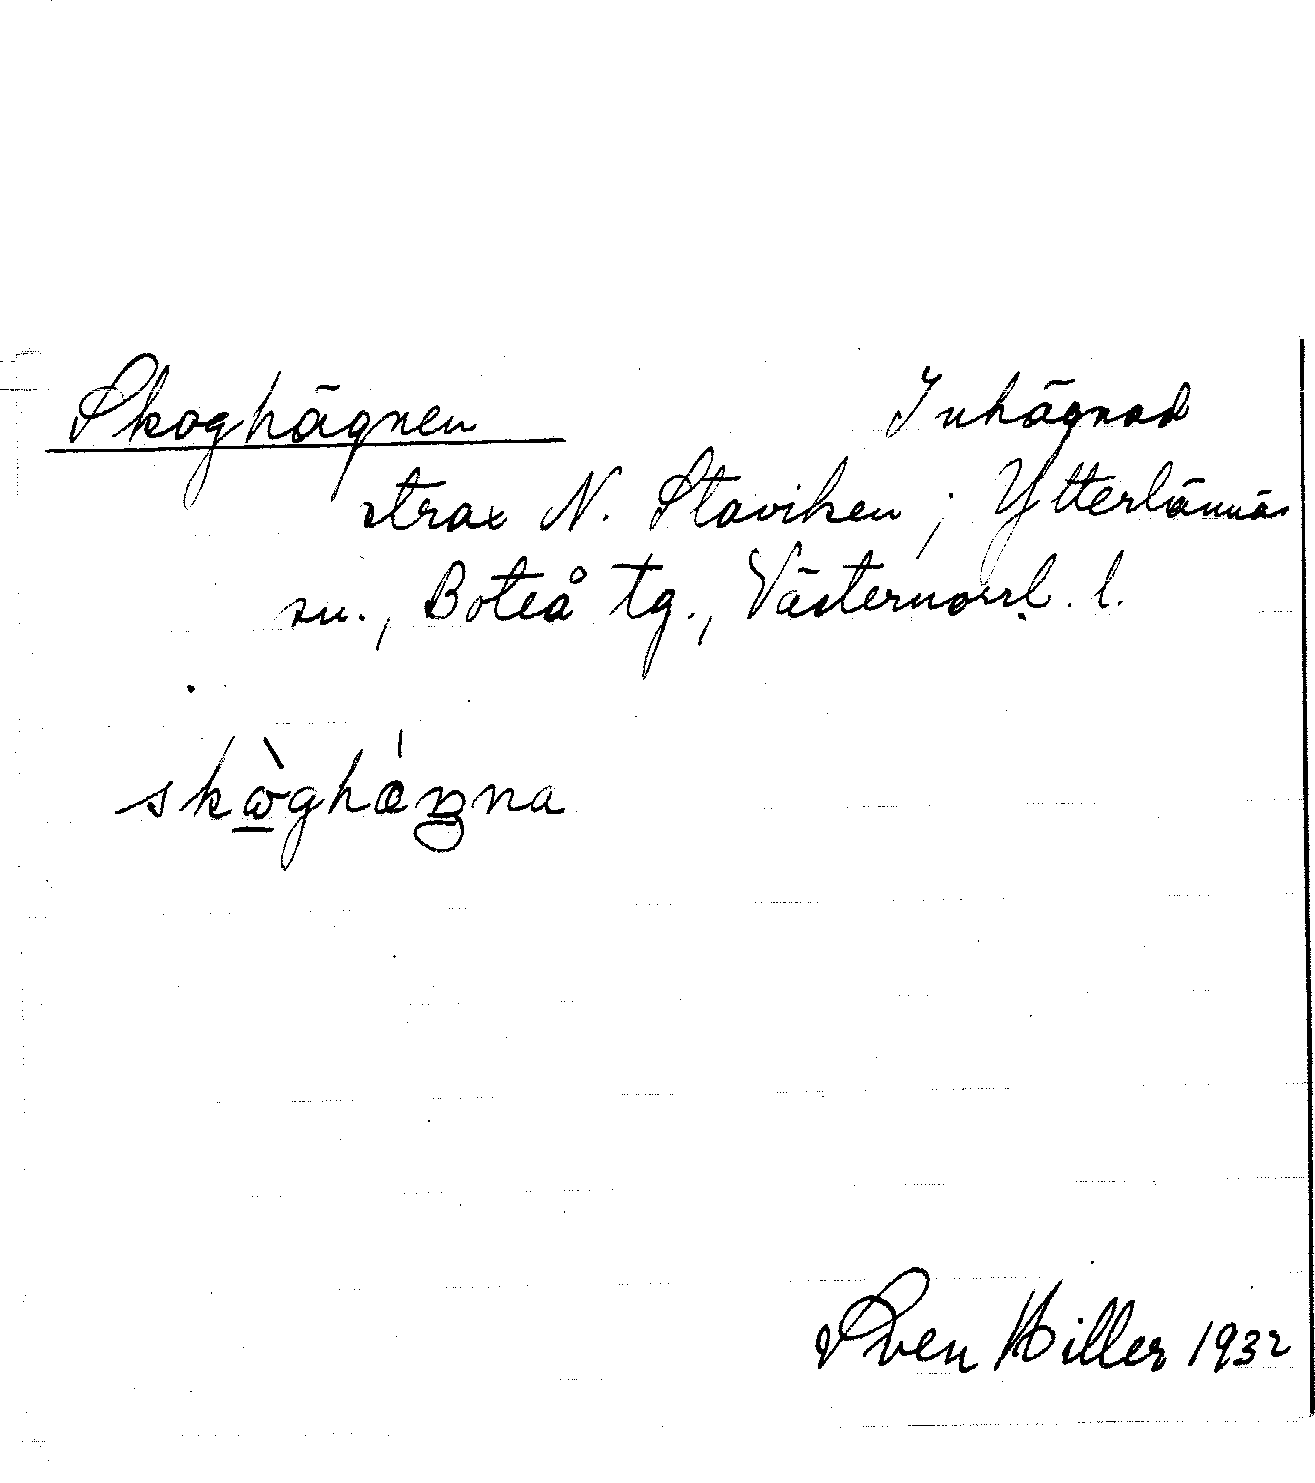 Skoghägnen Inhägnad
strax N. Staviken, Ytterlännäs
sn., Boteå tg., Västernorrl. l.
Sven Hiller 1932